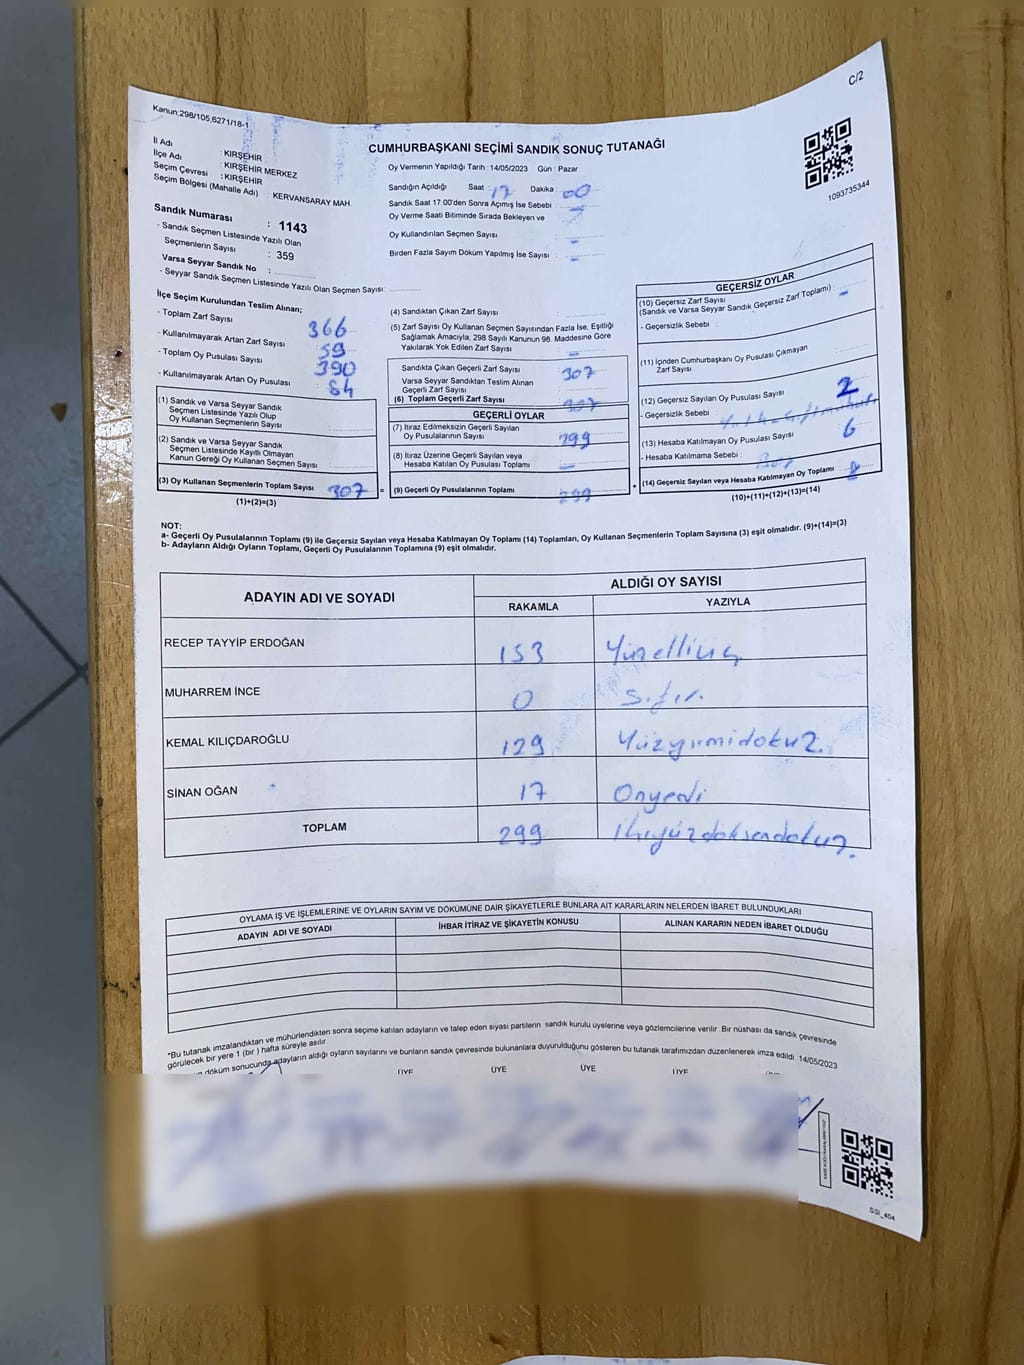 C/2
Kanun;298/105,6271/18-1
CUMHURBAŞKANI SEÇİMİ SANDIK SONUÇ TUTANAĞI
İl Adı : KIRŞEHİR
İlçe Adı : KIRŞEHİR MERKEZ
Seçim Çevresi : KIRŞEHİR
Seçim Bölgesi (Mahalle Adı) : KERVANSARAY MAH.
Oy Vermenin Yapıldığı Tarih : 14/05/2023 Gün : Pazar
Sandığın Açıldığı Saat : 17 Dakika : 00
Sandık Saat 17.00'den Sonra Açımış İse Sebebi : -
Oy Verme Saati Bitiminde Sırada Bekleyen ve
Oy Kullandırılan Seçmen Sayısı : -
Birden Fazla Sayım Döküm Yapılmış İse Sayısı : -
1093735344
Sandık Numarası : 1143
- Sandık Seçmen Listesinde Yazılı Olan
Seçmenlerin Sayısı : 359
Varsa Seyyar Sandık No :
- Seyyar Sandık Seçmen Listesinde Yazılı Olan Seçmen Sayısı:
İlçe Seçim Kurulundan Teslim Alınan;
- Toplam Zarf Sayısı : 366
- Kullanılmayarak Artan Zarf Sayısı : 59
- Toplam Oy Pusulası Sayısı : 390
- Kullanılmayarak Artan Oy Pusulası : 84
(1) Sandık ve Varsa Seyyar Sandık
Seçmen Listesinde Yazılı Olup
Oy Kullanan Seçmenlerin Sayısı :
(2) Sandık ve Varsa Seyyar Sandık
Seçmen Listesinde Kayıtlı Olmayan
Kanun Gereği Oy Kullanan Seçmen Sayısı :
(3) Oy Kullanan Seçmenlerin Toplam Sayısı : 307 =
(1)+(2)=(3)
(4) Sandıktan Çıkan Zarf Sayısı :
(5) Zarf Sayısı Oy Kullanan Seçmen Sayısından Fazla İse, Eşitliği
Sağlamak Amacıyla; 298 Sayılı Kanunun 98. Maddesine Göre
Yakılarak Yok Edilen Zarf Sayısı : -
Sandıkta Çıkan Geçerli Zarf Sayısı : 307
Varsa Seyyar Sandıktan Teslim Alınan
Geçerli Zarf Sayısı :
(6) Toplam Geçerli Zarf Sayısı : 307
GEÇERLİ OYLAR
(7) İtiraz Edilmeksizin Geçerli Sayılan
Oy Pusulalarının Sayısı : 299
(8) İtiraz Üzerine Geçerli Sayılan veya
Hesaba Katılan Oy Pusulası Toplamı : -
(9) Geçerli Oy Pusulalarının Toplamı : 299 +
GEÇERSİZ OYLAR
(10) Geçersiz Zarf Sayısı
(Sandık ve Varsa Seyyar Sandık Geçersiz Zarf Toplamı) : -
- Geçersizlik Sebebi :
(11) İçinden Cumhurbaşkanı Oy Pusulası Çıkmayan
Zarf Sayısı :
(12) Geçersiz Sayılan Oy Pusulası Sayısı : 2
- Geçersizlik Sebebi :
(13) Hesaba Katılmayan Oy Pusulası Sayısı : 6
- Hesaba Katılmama Sebebi :
(14) Geçersiz Sayılan veya Hesaba Katılmayan Oy Toplamı : 8
(10)+(11)+(12)+(13)=(14)
NOT:
a- Geçerli Oy Pusulalarının Toplamı (9) ile Geçersiz Sayılan veya Hesaba Katılmayan Oy Toplamı (14) Toplamları, Oy Kullanan Seçmenlerin Toplam Sayısına (3) eşit olmalıdır. (9)+(14)=(3)
b- Adayların Aldığı Oyların Toplamı, Geçerli Oy Pusulalarının Toplamına (9) eşit olmalıdır.
ADAYIN ADI VE SOYADI ALDIĞI OY SAYISI
RAKAMLA YAZIYLA
RECEP TAYYİP ERDOĞAN 153 Yüzelliüç
MUHARREM İNCE 0 Sıfır.
KEMAL KILIÇDAROĞLU 129 Yüzyirmidokuz.
SİNAN OĞAN 17 Onyedi
TOPLAM 299 ikiyüzdoksandokuz.
OYLAMA İŞ VE İŞLEMLERİNE VE OYLARIN SAYIM VE DÖKÜMÜNE DAİR ŞİKAYETLERLE BUNLARA AİT KARARLARIN NELERDEN İBARET BULUNDUKLARI
ADAYIN ADI VE SOYADI İHBAR İTİRAZ VE ŞİKAYETİN KONUSU ALINAN KARARIN NEDEN İBARET OLDUĞU
*Bu tutanak imzalandıktan ve mühürlendikten sonra seçime katılan adayların ve talep eden siyasi partilerin sandık kurulu üyelerine veya gözlemcilerine verilir. Bir nüshası da sandık çevresinde
görülecek bir yere 1 (bir ) hafta süreyle asılır.
döküm sonucunda adayların aldığı oyların sayılarını ve bunların sandık çevresinde bulunanlara duyurulduğunu gösteren bu tutanak tarafımızdan düzenlenerek imza edildi. 14/05/2023
ÜYE ÜYE ÜYE ÜYE
SSI_404